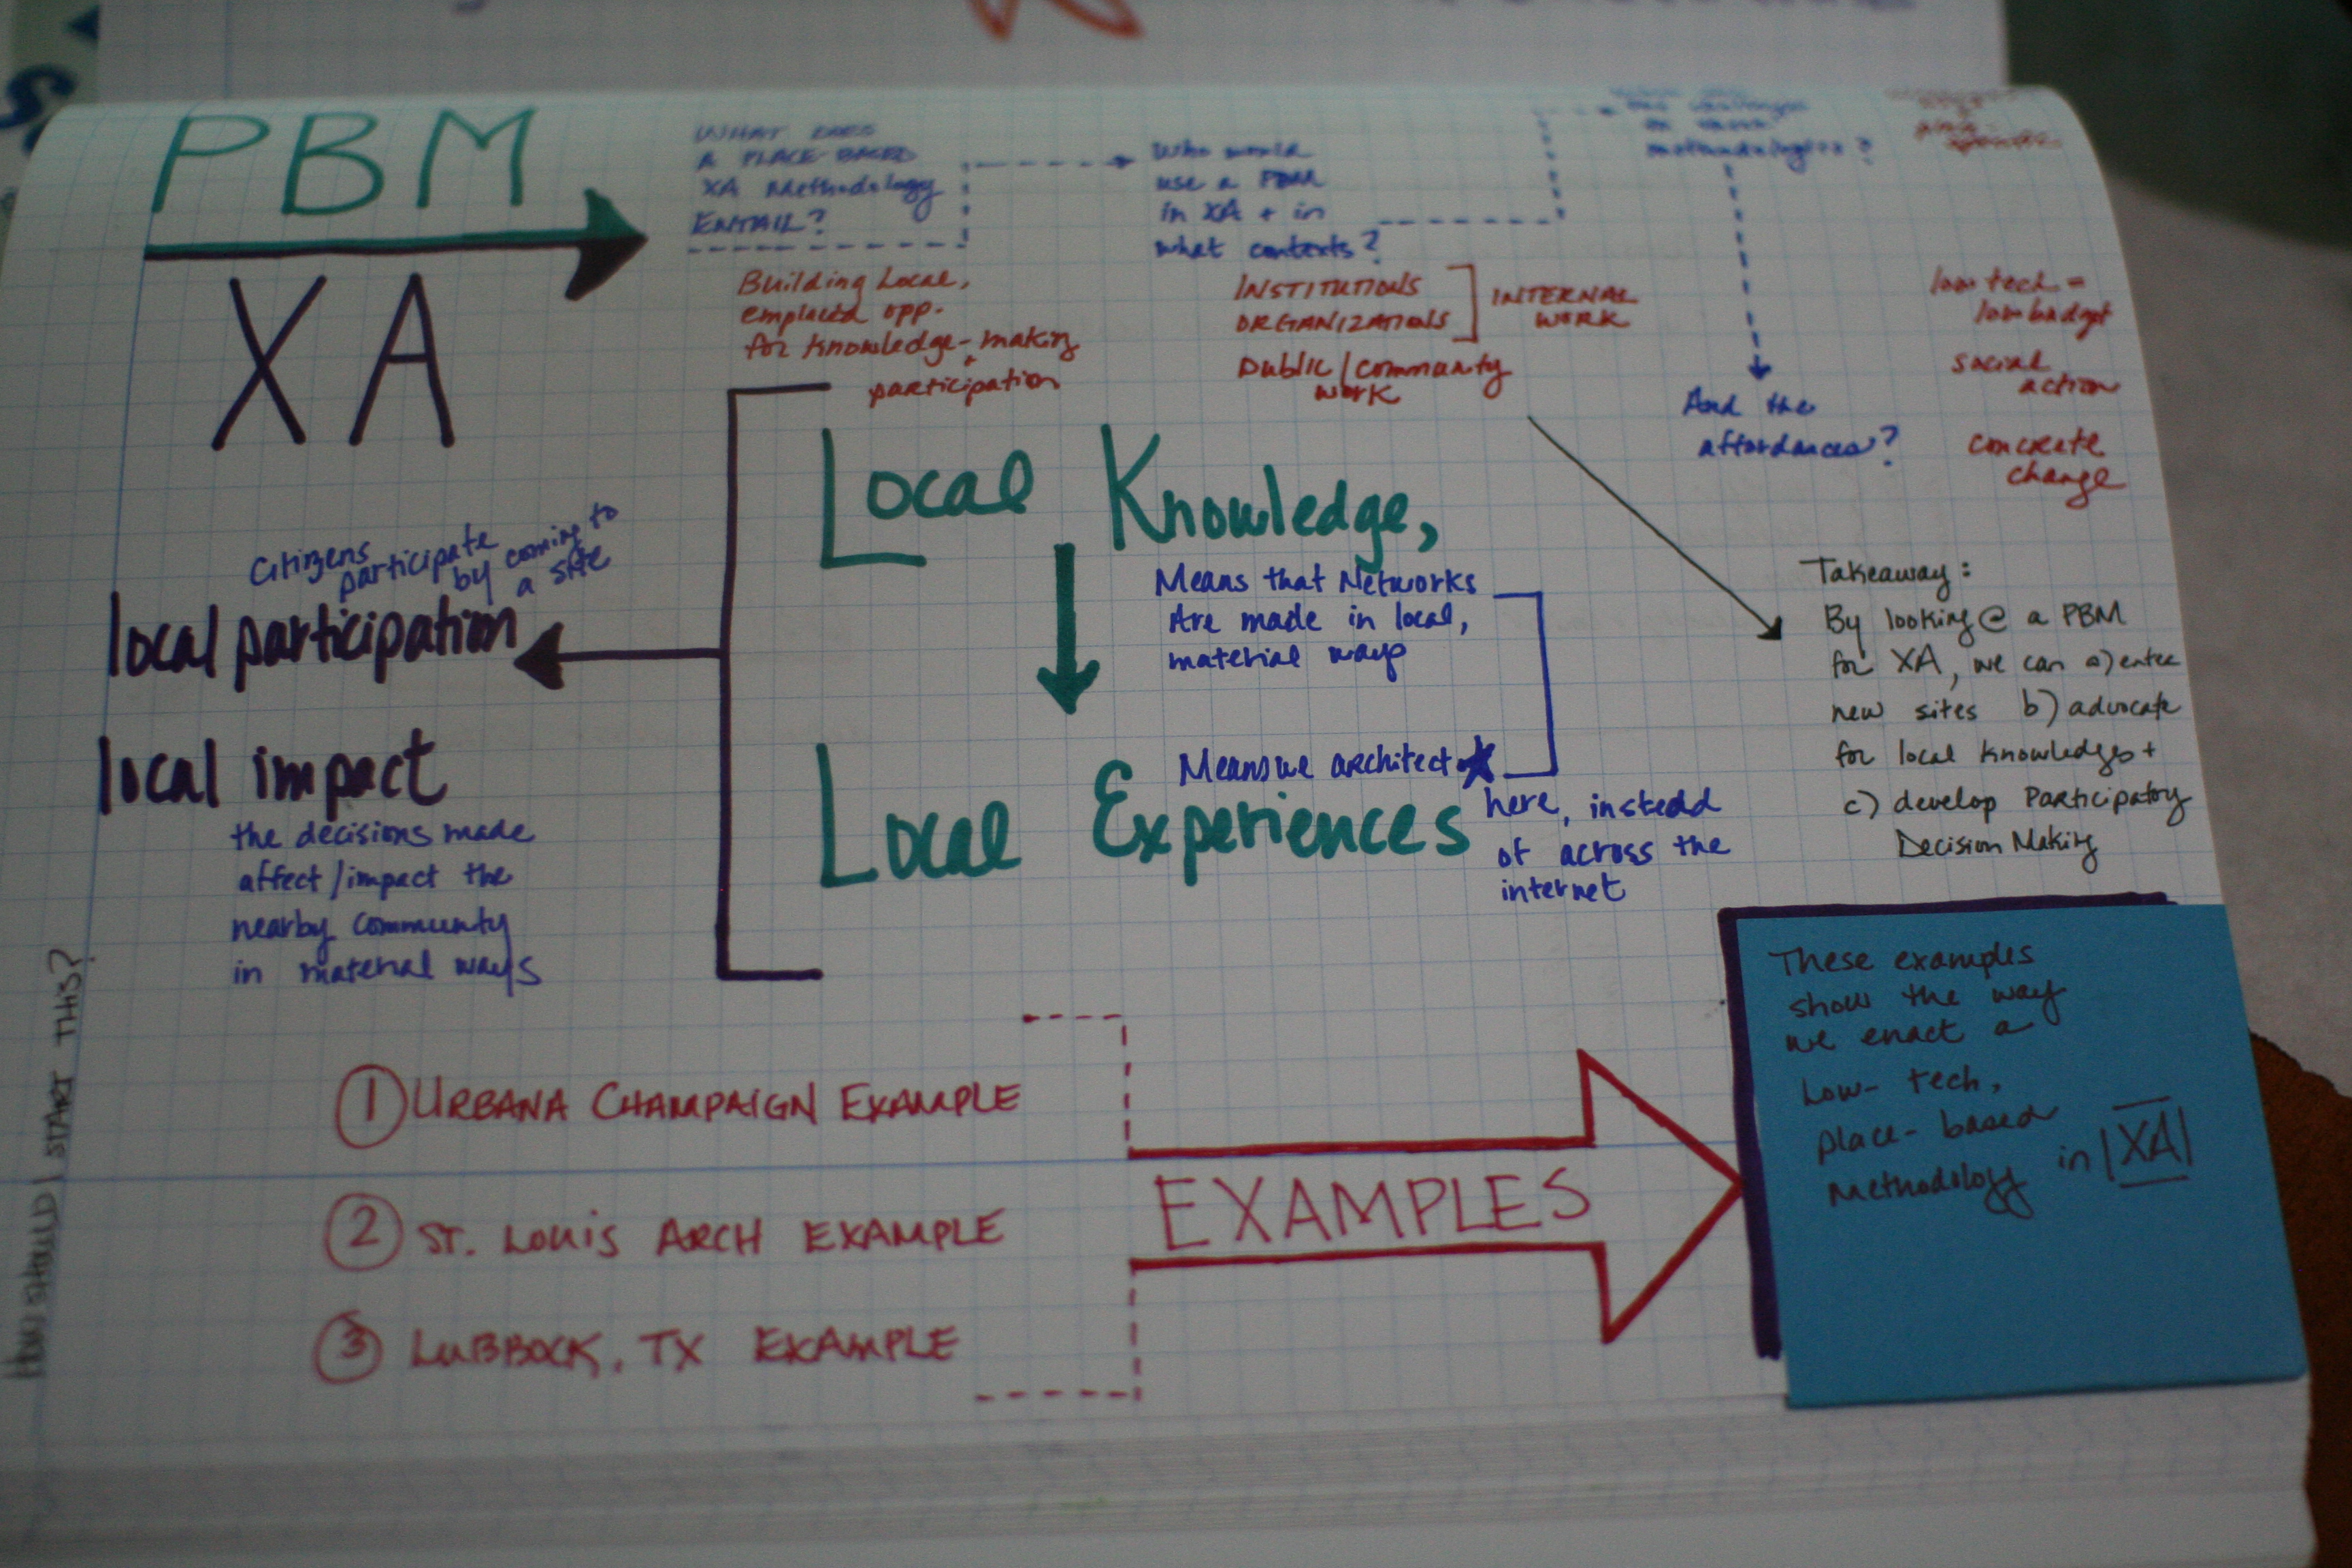 PBM
XA
WHAT DOES
A PLACE-BASED
XA Methodology
ENTAIL?
Building Local,
emplaced opp.
for knowledge-making
+
participation
Who would
use a PBM
in XA + in
what contexts?
INSTITUTIONS
ORGANIZATIONS
INTERNAL
WORK
Public/community
work
methodologies?
And the
affordances?
low tech =
low budget
social
action
concrete
change
Local Knowledge,
Means that Networks
Are made in local,
material ways
Local Experiences
Means we architect
here, instead
of across the
internet
Citizens
participate
by coming to
a site
local participation
local impact
the decisions made
affect/impact the
nearby community
in material ways
Takeaway:
By looking @ a PBM
for XA, we can a) enter
new sites b) advocate
for local knowledges +
c) develop Participatory
Decision Making
HOW SHOULD I START THIS?
1 URBANA CHAMPAIGN EXAMPLE
2 ST. LOUIS ARCH EXAMPLE
3 LUBBOCK, TX EXAMPLE
EXAMPLES
These examples
show the way
we enact a
Low-tech,
place-based
Methodology in |XA|